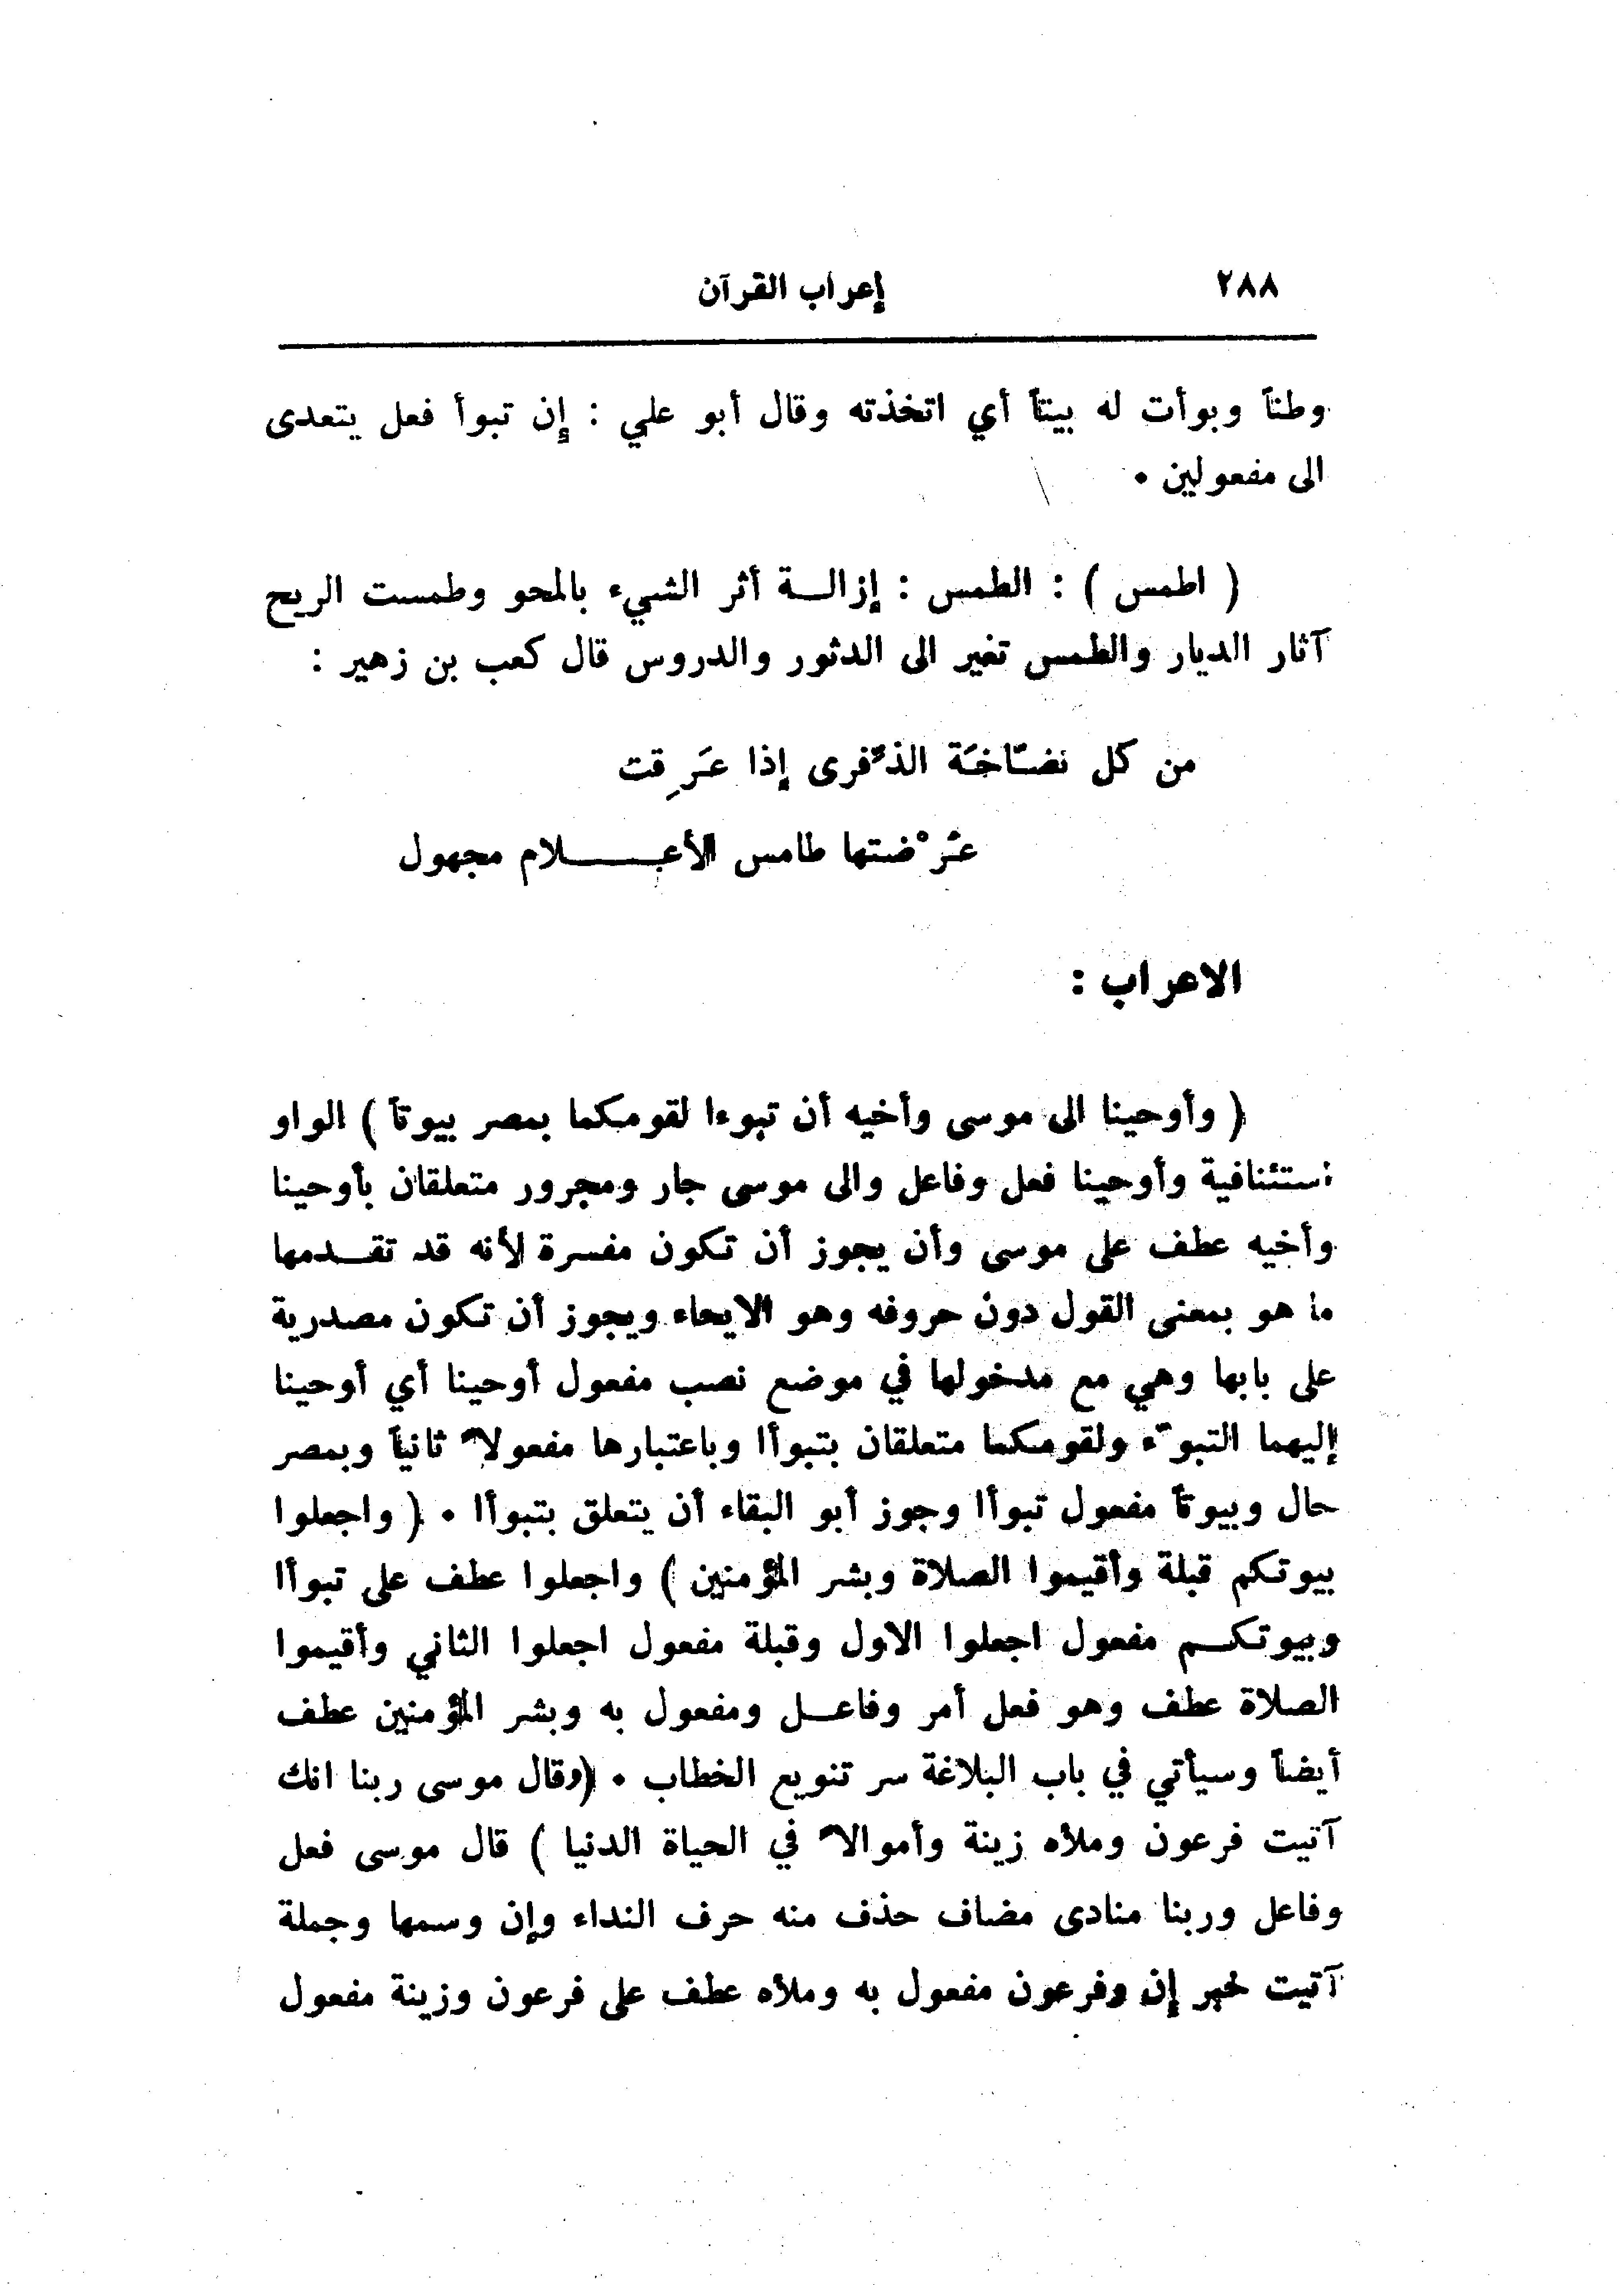 ٢٨٨ إعراب القرآن
وطناً وبوأت له بيتاً أي اتخذته وقال أبو علي : إن تبوأ فعل يتعدى
الى مفعولين .
( اطمس ) : الطمس : إزالة أثر الشيء بالمحو وطمست الريح
آثار الديار والطمس تغير الى الدثور والدروس قال كعب بن زهير :
من كل نضّاخَة الذّفرى إذا عَرِقت
عُرْضتها طامس الأعلام مجهول
الاعراب :
( وأوحينا الى موسى وأخيه أن تبوءا لقومكما بمصر بيوتاً ) الواو
استئنافية وأوحينا فعل وفاعل والى موسى جار ومجرور متعلقان بأوحينا
وأخيه عطف على موسى وأن يجوز أن تكون مفسرة لأنه قد تقدمها
ما هو بمعنى القول دون حروفه وهو الايحاء ويجوز أن تكون مصدرية
على بابها وهي مع مدخولها في موضع نصب مفعول أوحينا أي أوحينا
إليهما التبوّء ولقومكما متعلقان بتبوأا وباعتبارها مفعولاً ثانياً وبمصر
حال وبيوتاً مفعول تبوأا وجوز أبو البقاء أن يتعلق بتبوأا . ( واجعلوا
بيوتكم قبلة وأقيموا الصلاة وبشر المؤمنين ) واجعلوا عطف على تبوأا
وبيوتكم مفعول اجعلوا الاول وقبلة مفعول اجعلوا الثاني وأقيموا
الصلاة عطف وهو فعل أمر وفاعل ومفعول به وبشر المؤمنين عطف
أيضاً وسيأتي في باب البلاغة سر تنويع الخطاب . (وقال موسى ربنا انك
آتيت فرعون وملأه زينة وأموالاً في الحياة الدنيا ) قال موسى فعل
وفاعل وربنا منادى مضاف حذف منه حرف النداء وإن وسمها وجملة
آتيت خبر إن وفرعون مفعول به وملأه عطف على فرعون وزينة مفعول